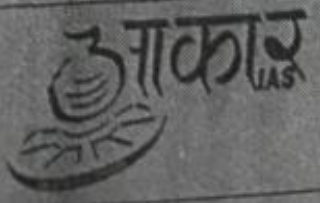 आकार
IAS